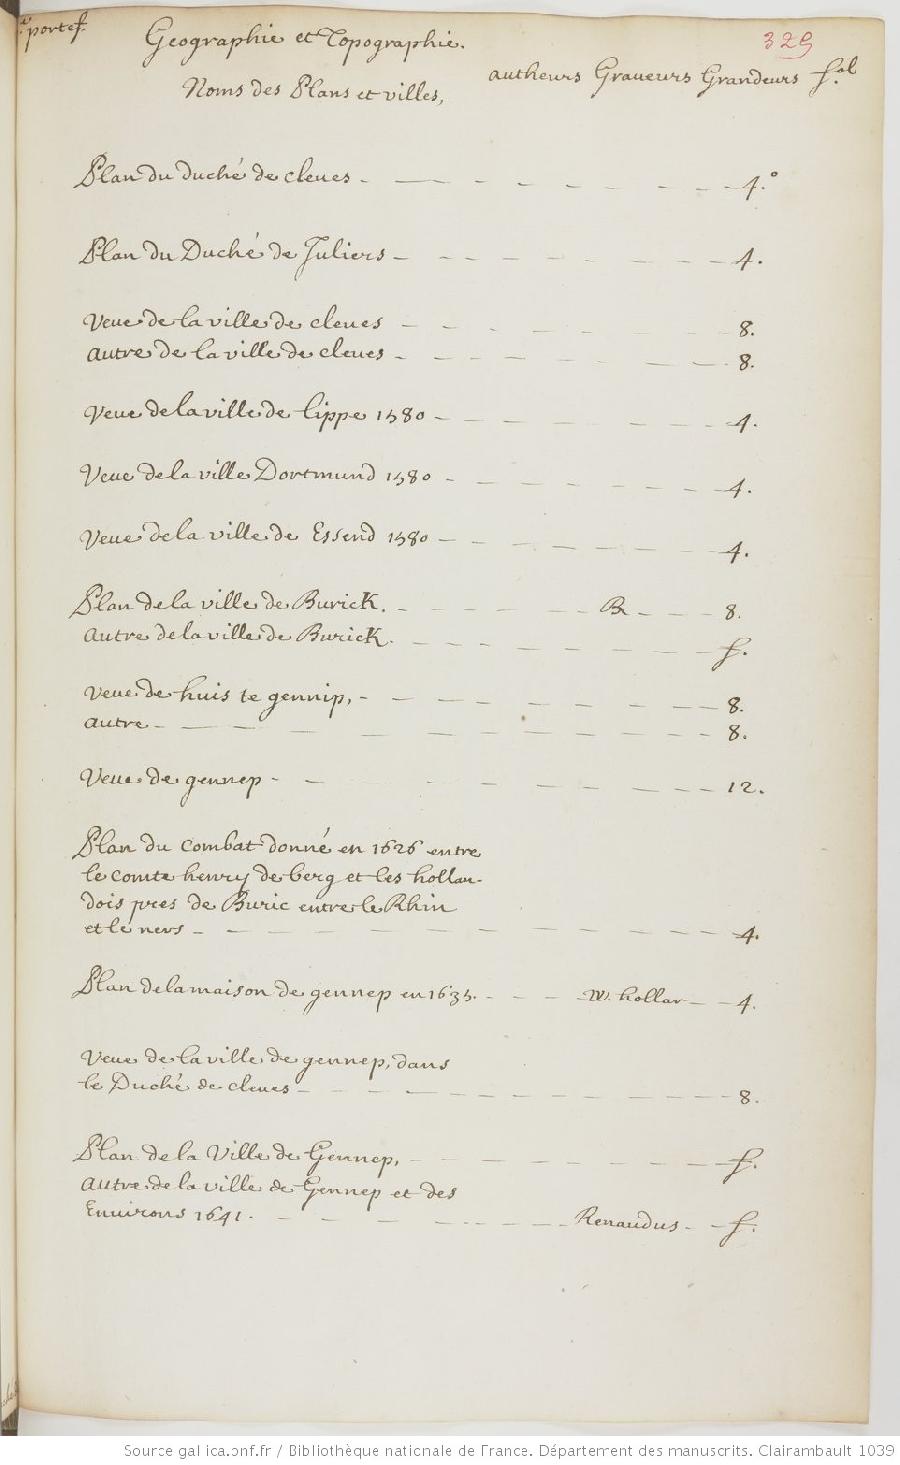 portef. Geographie et Topographie. 325
Noms des Plans et villes, autheurs Graveurs Grandeurs fol.
Plan du duché de cleves - 4.°
Plan du Duché de Juliers - 4.
Veue de la ville de cleves - 8.
autre de la ville de cleves - 8.
Veue de la ville de Lippe 1580 - 4.
Veue de la ville Dortmund 1580 - 4.
Veue de la ville de Essend 1580 - 4.
Plan de la ville de Burick. - B - 8.
autre de la ville de Burick. - f.
veue de huis te gennip, - 8.
autre - 8.
Veue de gennep - 12.
Plan du combat donné en 1626 entre
le comte henry de berg et les hollan-
dois pres de Buric entre le Rhin
et le ners - 4.
Plan de la maison de gennep en 1635. - W. hollar - 4.
Veue de la ville de gennep, dans
le Duché de cleves - 8.
Plan de la Ville de Gennep, - f.
autre de la ville de Gennep et des
Environs 1641. - Renaudus - f.
Source gallica.bnf.fr / Bibliothèque nationale de France. Département des manuscrits. Clairambault 1039